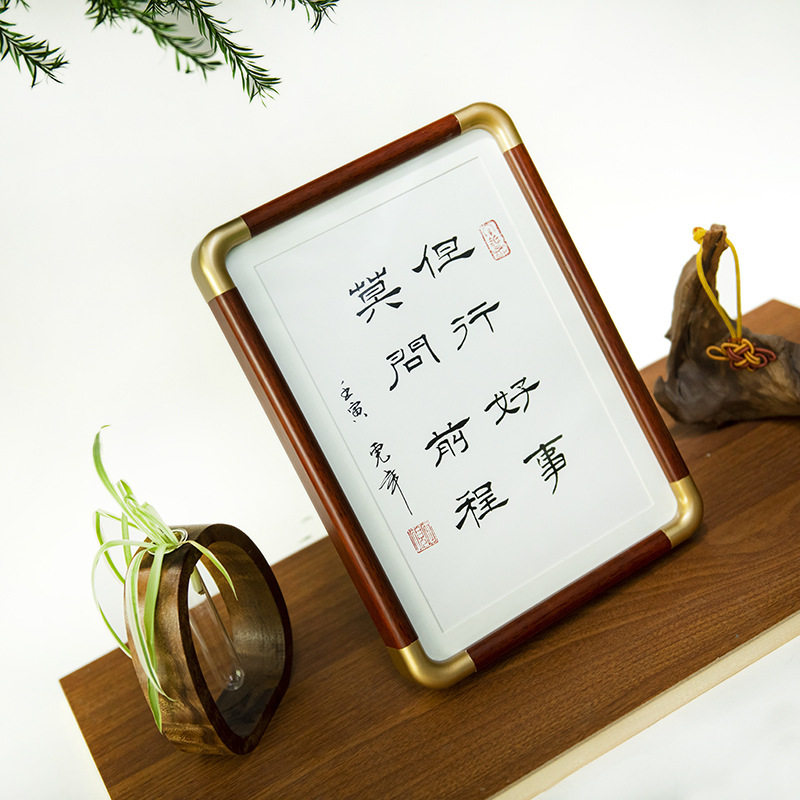 但行好事
莫問前程
壬寅